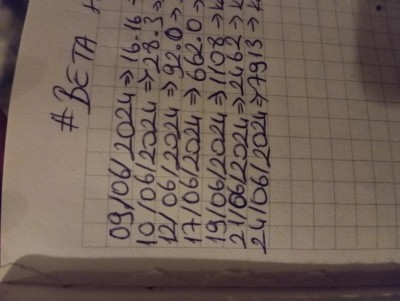 # BETA
09/06/2024 => 16.16 =>
10/06/2024 => 28.3 =>
12/06/2024 => 92.0 =>
17/06/2024 => 662.0 =>
19/06/2024 => 1108 =>
21/06/2024 => 2462 =>
24/06/2024 => 7913 =>